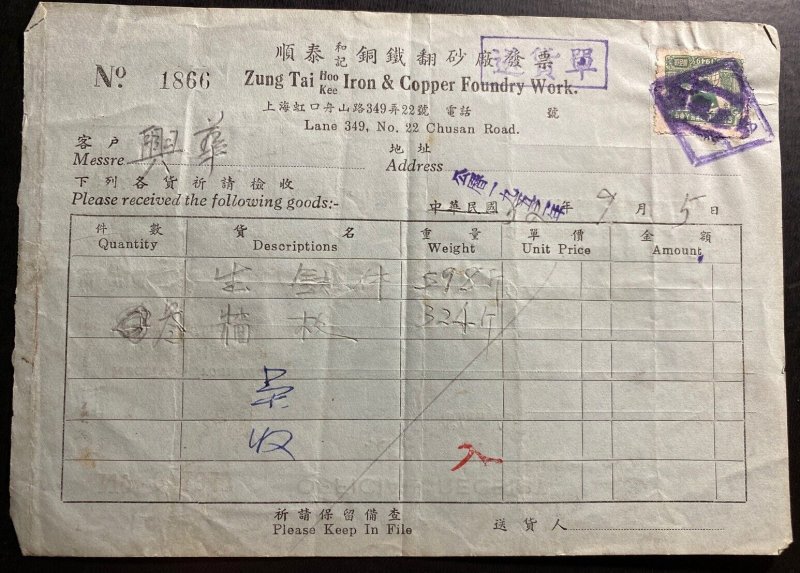 順泰和記銅鐵翻砂廠發票
送貨單
No 1866
Zung Tai Hoo Kee Iron & Copper Foundry Work.
上海虹口舟山路349弄22號 電話 號
Lane 349, No. 22 Chusan Road.
客戶 興華 地址
Messre Address
下列各貨祈請檢收
Please received the following goods:-
中華民國 公曆一九五二年 年 9 月 5 日
件數 貨名 重量 單價 金額
Quantity Descriptions Weight Unit Price Amount
生 件 598斤
324斤
收
祈請保留備查
Please Keep In File
送貨人